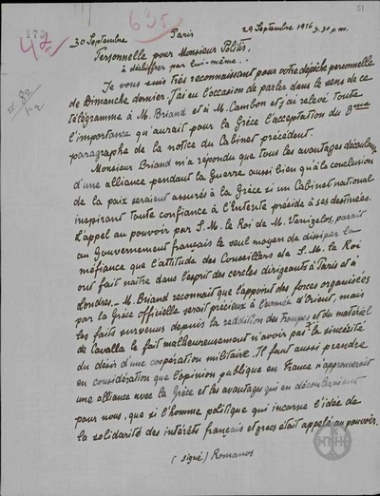 51
173
42
635
30 Septembre Paris 29 Septembre 1916
Personnelle pour Monsieur Politis,
à déchiffrer par lui-même.
Je vous suis très reconnaissant pour votre dépêche personnelle
de Dimanche dernier. J'ai eu l'occasion de parler dans le sens de ce
télégramme à M. Briand et à M. Cambon et j'ai relevé toute
l'importance qu'aurait pour la Grèce l'acceptation du
paragraphe de la notice du Cabinet précédent.
Monsieur Briand m'a répondu que tous les avantages découlant
d'une alliance pendant la guerre aussi bien qu'à la conclusion
de la paix seraient assurés à la Grèce si un Cabinet national
inspirant toute confiance à l'Entente préside à ses destinées.
L'appel au pouvoir par S. M. le Roi de M. Venizelos, paraît
au Gouvernement français le seul moyen de dissiper la
méfiance que l'attitude des Conseillers de S. M. le Roi
ont fait naître dans l'esprit des cercles dirigeants à Paris et à
Londres. M. Briand reconnaît que l'appoint des forces organisées
par la Grèce officielle serait précieux à l'armée d'Orient, mais
les faits survenus depuis la reddition des troupes et du matériel
de Cavalla le fait malheureusement n'avoir pas la sincérité
du désir d'une coopération militaire. Il faut aussi prendre
en considération que l'opinion publique en France n'approuverait
une alliance avec la Grèce et les avantages qui en découleraient
pour nous, que si l'homme politique qui incarne l'idée de
la solidarité des intérêts français et grecs était appelé au pouvoir.
(signé) Romanos